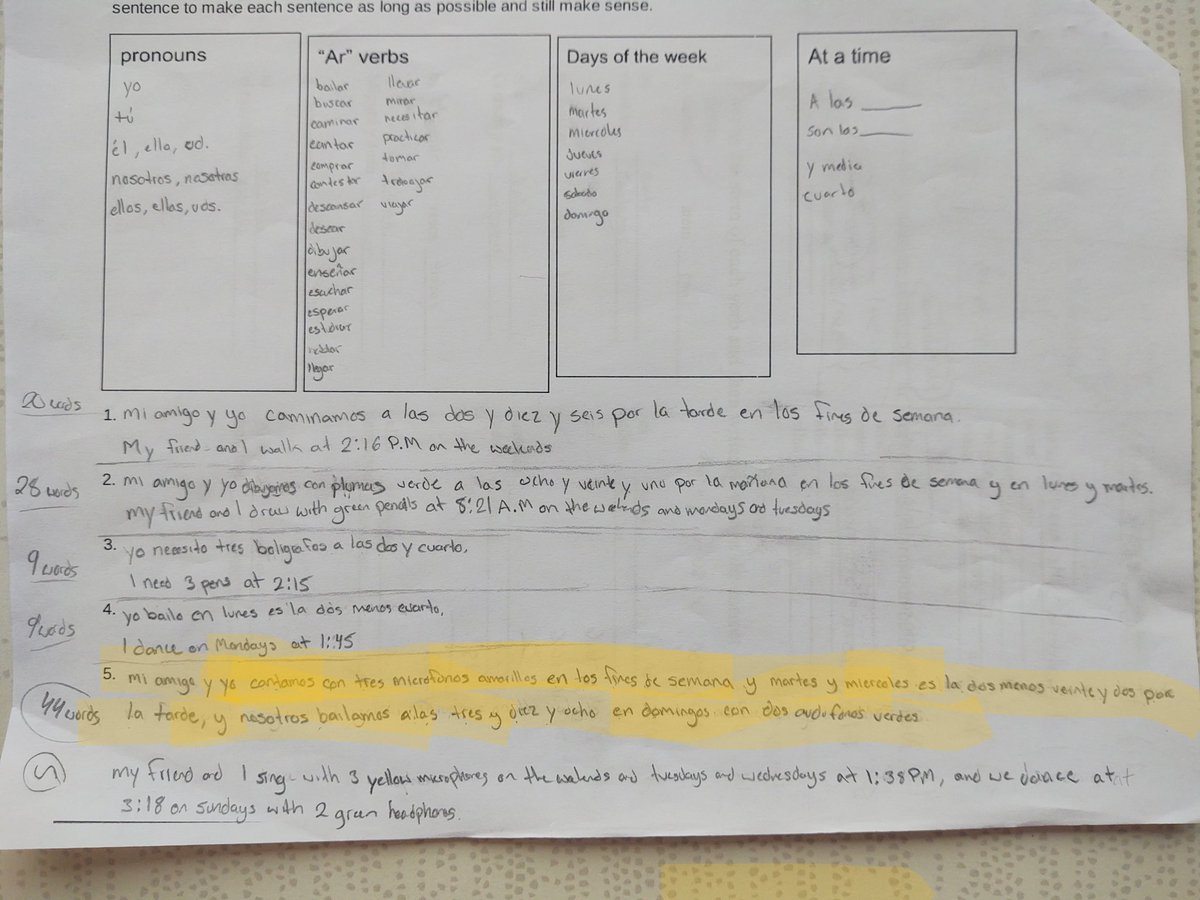 sentence to make each sentence as long as possible and still make sense.
pronouns
yo
tú
él, ella, ud.
nosotros, nosotras
ellos, ellas, uds.
"Ar" verbs
bailar
buscar
caminar
cantar
comprar
contestar
descansar
desear
dibujar
enseñar
escuchar
esperar
estudiar
llegar
llevar
mirar
necesitar
practicar
tomar
trabajar
viajar
Days of the week
lunes
martes
miercoles
Jueves
vierres
sabado
domingo
At a time
A las ______
son las ______
y media
cuarto
20 words
1. mi amigo y yo caminamos a las dos y diez y seis por la tarde en los fines de semana.
My friend and I walk at 2:16 P.M on the weekends
28 words
2. mi amigo y yo dibujamos con plumas verde a las ocho y veinte y uno por la mañana en los fines de semana y en lunes y martes.
my friend and I draw with green pencils at 8:21 A.M on the weekends and mondays and tuesdays
9 words
3. yo necesito tres boligrafos a las dos y cuarto,
I need 3 pens at 2:15
9 words
4. yo bailo en lunes es la dos menos cuarto,
I dance on Mondays at 1:45
5. mi amigo y yo cantamos con tres microfonos amarillos en los fines de semana y martes y miercoles es la dos menos veinte y dos por
44 words
la tarde, y nosotros bailamos a las tres y diez y ocho en domingos con dos audufonos verdes
5
my friend and I sing with 3 yellow microphones on the weekends and tuesdays and wednesdays at 1:38 PM, and we dance at
3:18 on sundays with 2 green headphones.